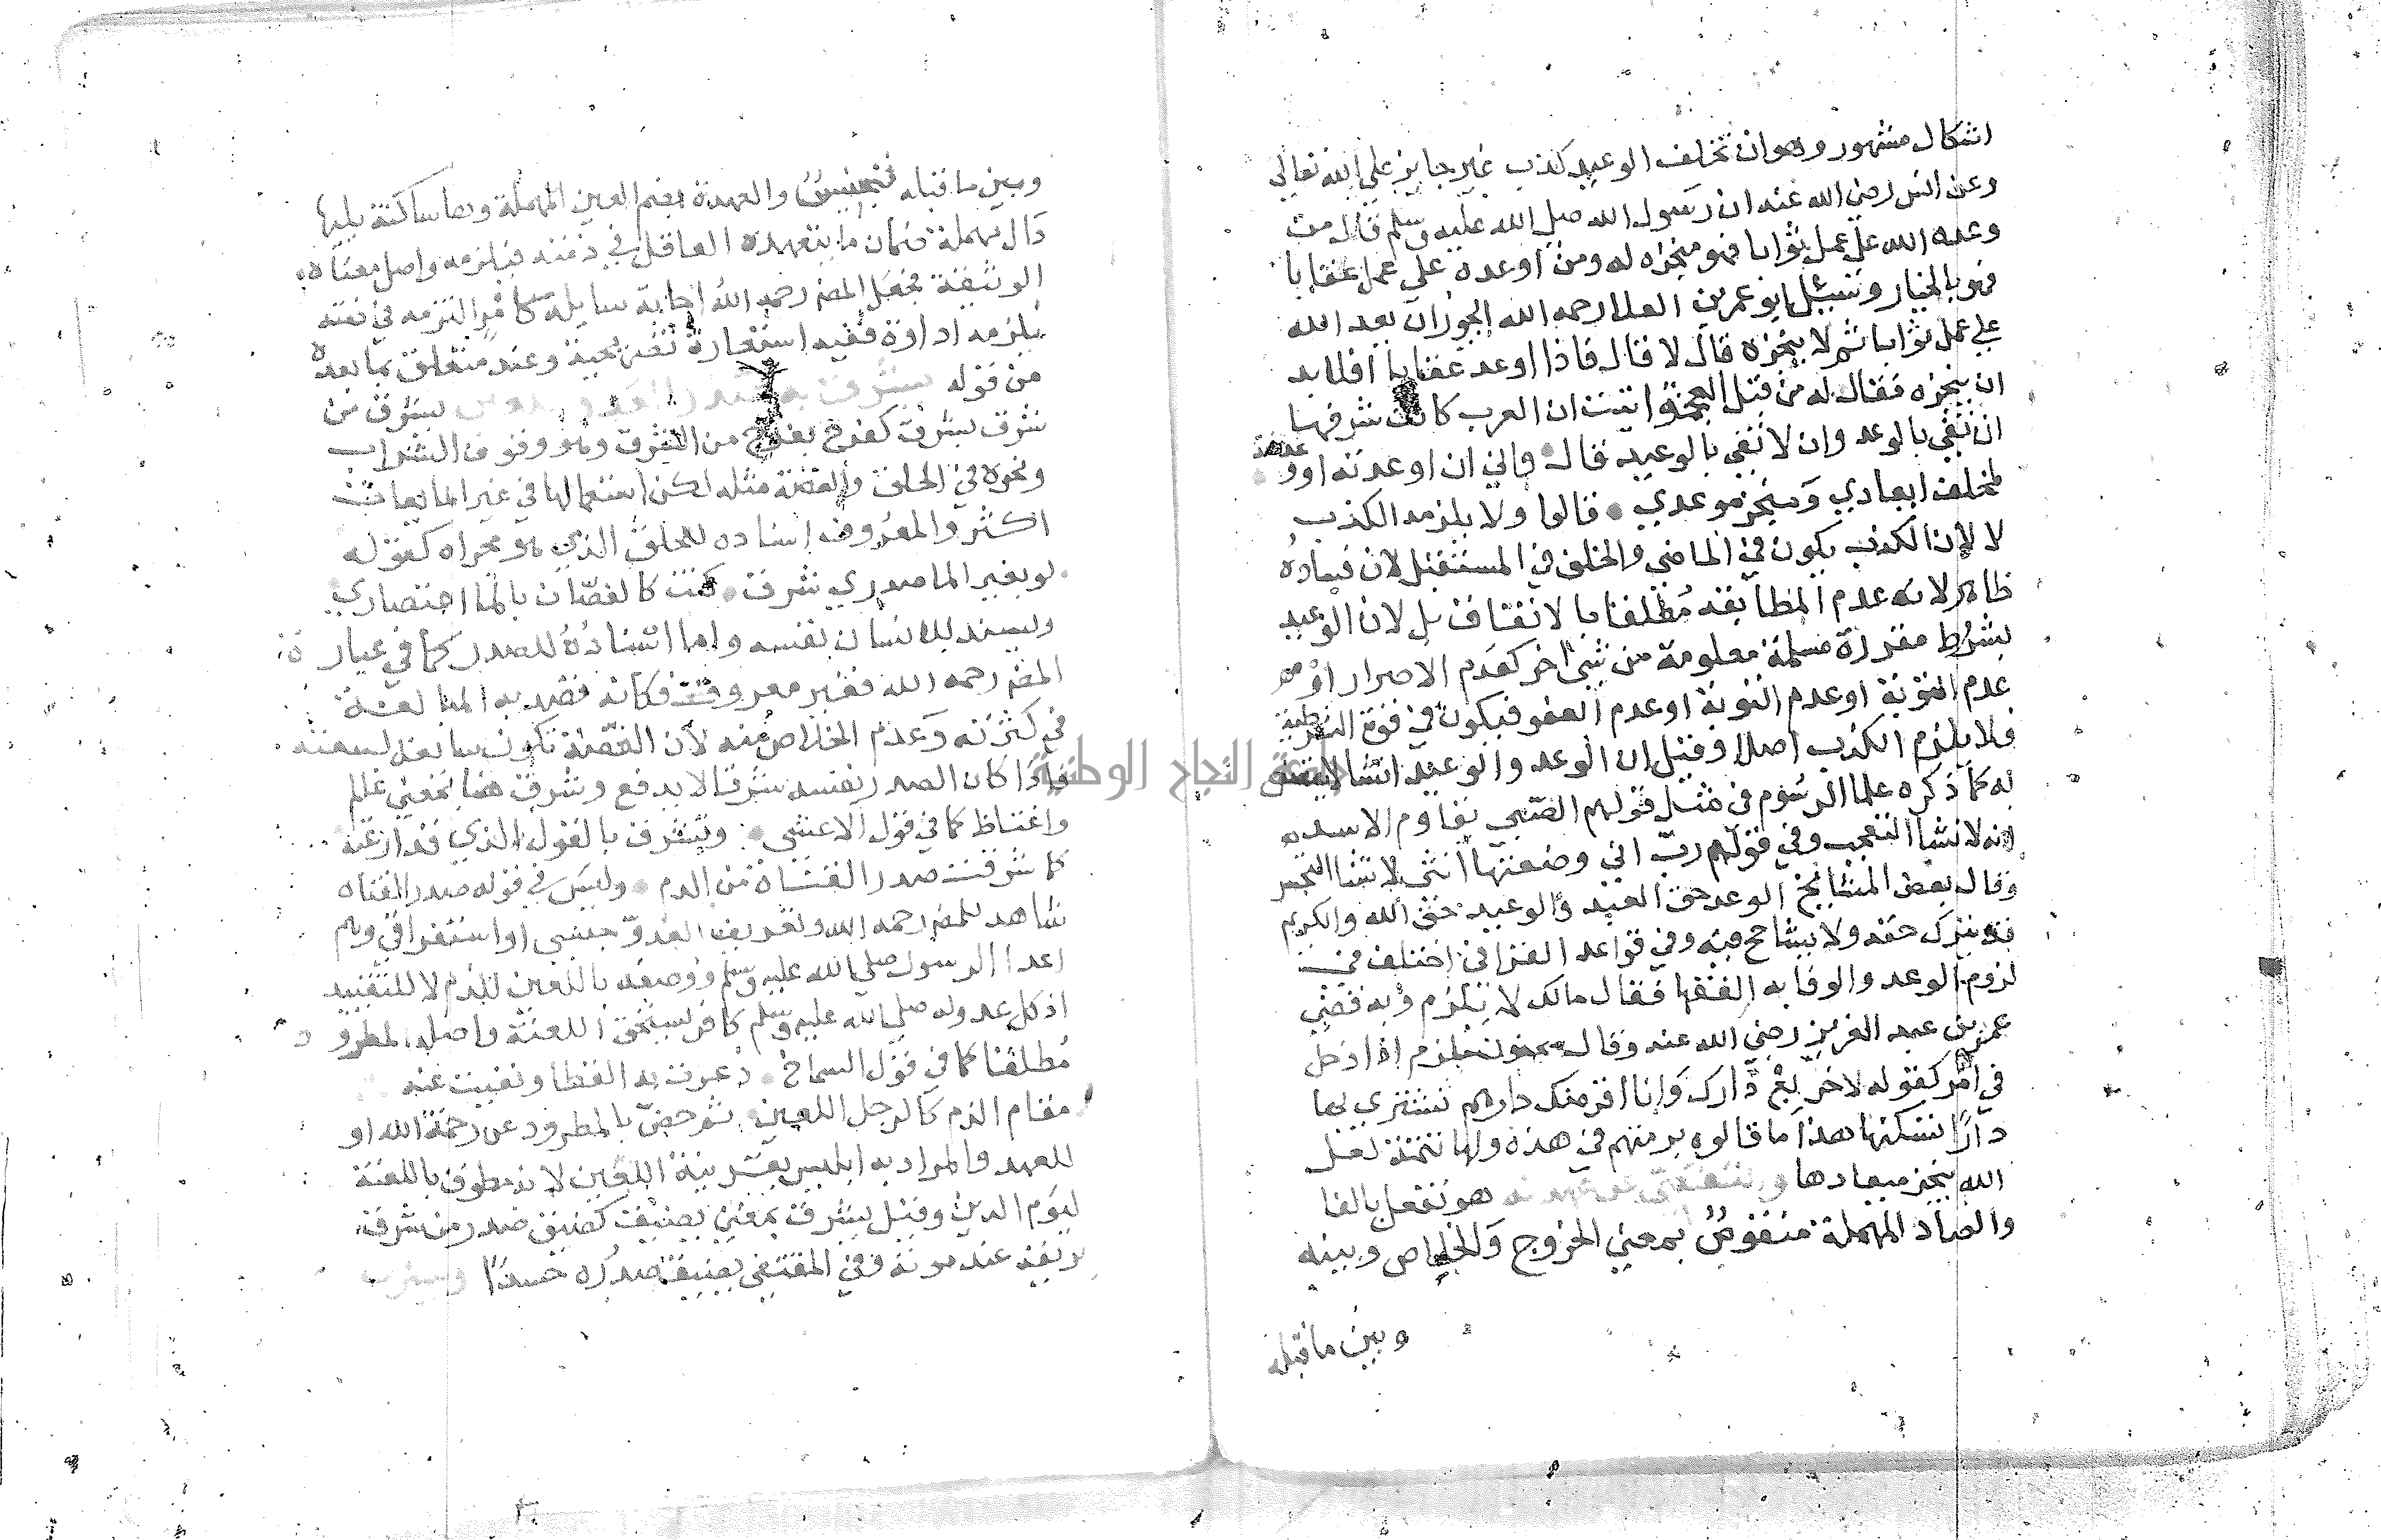 اشكال مشهور وهو ان تخلف الوعيد كذب غير جايز علي الله تعالي
وعن انس رضي الله عنه ان رسول الله صلي الله عليه وسلم قال من
وعده الله علي عمل ثوابا فهو منجزه له ومن اوعده علي عمل عقابا
فهو بالخيار وسئل ابو عمر بن العلا رحمه الله ايجوز ان يعد الله
علي عمل ثوابا ثم لا ينجزه قال لا قال فاذا اوعد عقابا افلا بد
ان ينجزه فقال له من قبل العجمة اتيت ان العرب كانت شرفها
ان تفي بالوعد وان لا تفي بالوعيد قال واني ان اوعدته او وعدته
لمخلف ايعادي ومنجز موعدي قالوا ولا يلزمه الكذب
لا لان الكذب يكون في الماضي والخلف في المستقبل لان فساده
ظاهر لانه عدم المطابقة مطلقا بالاتفاق بل لان الوعيد
بشرط مقدرة مسلمة معلومة من شيء اخر كعدم الاصرار او
عدم التوبة او عدم العفو فيكون في قوة الشرطية
فلا يلزم الكذب اصلا وقيل ان الوعد والوعيد انشا لا
له كما ذكره علما الرسوم في مثل قولهم الصبي يقاوم الاسد
انه لانشا التعجب وفي قولهم رب اني وضعتها انثي لانشا التحسر
وقال بعض المشايخ الوعد حق العبد والوعيد حق الله والكريم
قد يترك حقه ولا يشاحح فيه وفي قواعد القرافي اختلف في
لزوم الوعد والوفا به الفقها فقال مالك لا يلزم وبه قضي
عمر بن عبد العزيز رضي الله عنه وقال سحنون يلزم اذا ادخل
في امر كقوله لاخر بع دارك وانا اقرضك دراهم تشتري بها
دارا تسكنها هذا ما قالوه برمتهم في هذه ولها تتمة لعل
الله ينجز ميعادها هو تفعل بالفا
والصاد المهملة منقوص بمعني الخروج والخلاص وبينه
وبين ما قبله
وبين ما قبله تجنيس والعهدة بضم العين المهملة وها ساكنة يليها
دال مهملة ضمان ما يتعهده العاقل في ذمته فيلزمه واصل معناه
الوثيقة فجعل المص رحمه الله اجابة سايله كامر التزمه في ذمته
يلزمه اداوه ففيه استعارة تبعية وعند متعلق بما بعده
من قوله يشرق من
شرق يشرق كفرح يفرح من الشرق وهو وقوف الشراب
ونحوه في الحلق والغصة مثله لكن استعمالها في غير المايعات
اكثر والمعروف اسناده للحلق الذي هو مجراه كقوله
لو بغير الما صدري شرق كنت كالغصان بالما اعتصاري
ويسند للانسان نفسه واما اسناده للصدر كما في عبارة
المص رحمه الله فغير معروف فكانه قصد به المبالغة
في كثرته وعدم الخلاص منه لان الغصة تكون
فاذا كان الصدر نفسه شرقا لا يدفع وشرق هنا بمعني
واغتاظ كما في قول الاعشي وتشرق بالقول الذي قد اذعته
كما شرقت صدر القناة من الدم وليس في قوله صدر القناه
شاهد للمص رحمه الله وتعريف العدو جنسي او استغراقي وهم
اعدا الرسول صلي الله عليه وسلم ووصفه باللعين للذم لا للتقييد
اذ كل عدو له صلي الله عليه وسلم كافر يستحق اللعنة واصله المطرود
مطلقا كما في قول الشماخ ذعرت به القطا ونفيت عنه
مقام الذيب كالرجل اللعين ثم خص بالمطرود عن رحمة الله او
للعهد والمراد به ابليس بقرينة اللعين لانه مطوق باللعنة
ليوم الدين وقيل يشرق بمعني يضيق كضيق صدر من شرق
بريقه عند موته وفي المقتفي يضيق صدره حسدا